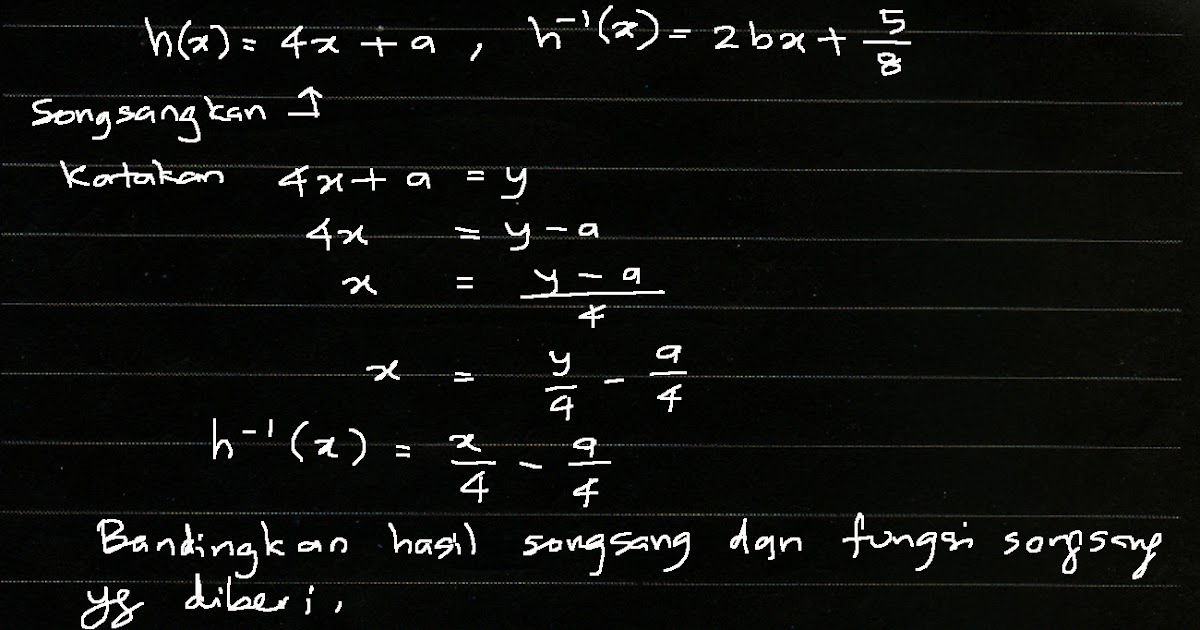 h(x) = 4x + a , h⁻¹(x) = 2bx + 5/8
Songsangkan ↑
Katakan 4x + a = y
4x = y - a
x = (y - a)/4
x = y/4 - a/4
h⁻¹(x) = x/4 - a/4
Bandingkan hasil songsang dgn fungsi songsang
yg diberi,